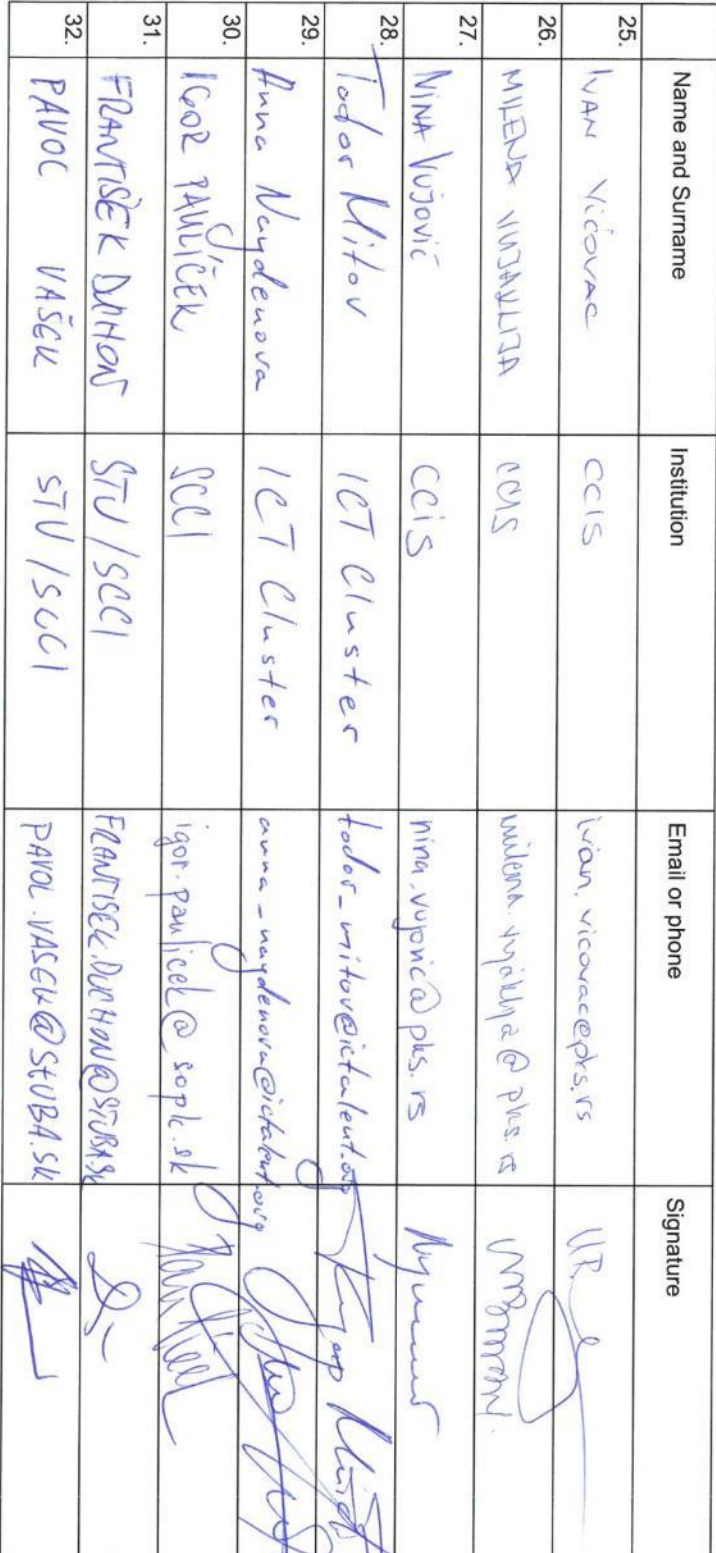 Name and Surname Institution Email or phone Signature
25. IVAN VIĆOVAC CCIS ivan.vicovac@pks.rs
26. MILENA VUJAKLIJA CCIS milena.vujaklija@pks.rs
27. NINA VUJOVIĆ CCIS nina.vujovic@pks.rs
28. Todor Mitov ICT Cluster todor_mitov@ictalent.org
29. Anna Naydenova ICT Cluster anna_naydenova@ictalent.org
30. IGOR PAULÍČEK SCCI igor.paulicek@sopk.sk
31. FRANTIŠEK DUCHOŇ STU/SCCI FRANTISEK.DUCHON@STUBA.SK
32. PAVOL VAŠEK STU/SCCI PAVOL.VASEK@STUBA.SK